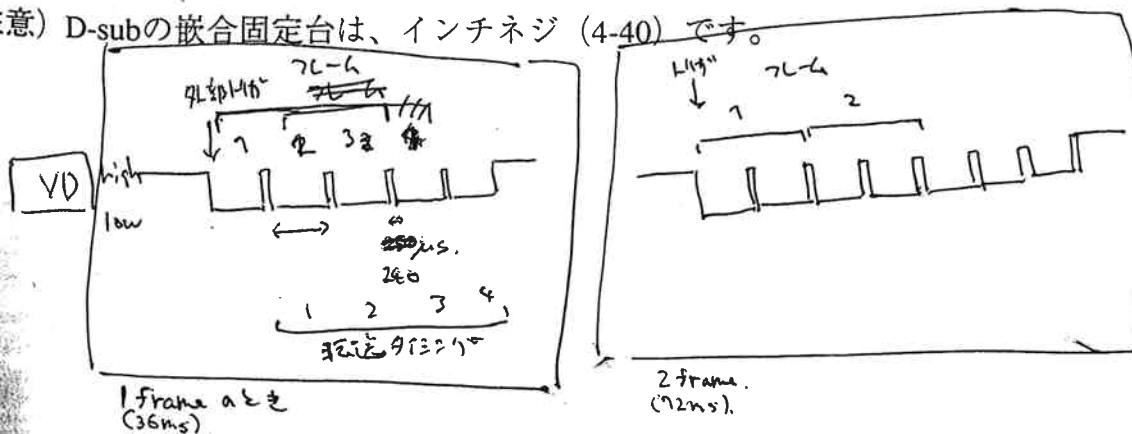 注意）D-subの嵌合固定台は、インチネジ（4-40）です。
フレーム
外部トリガ
1 2 3
VD
high
low
μs.
240
1 2 3 4
転送タイミング
1 frame のとき
(36ms)
トリガ フレーム
1 2
2 frame.
(72ms).